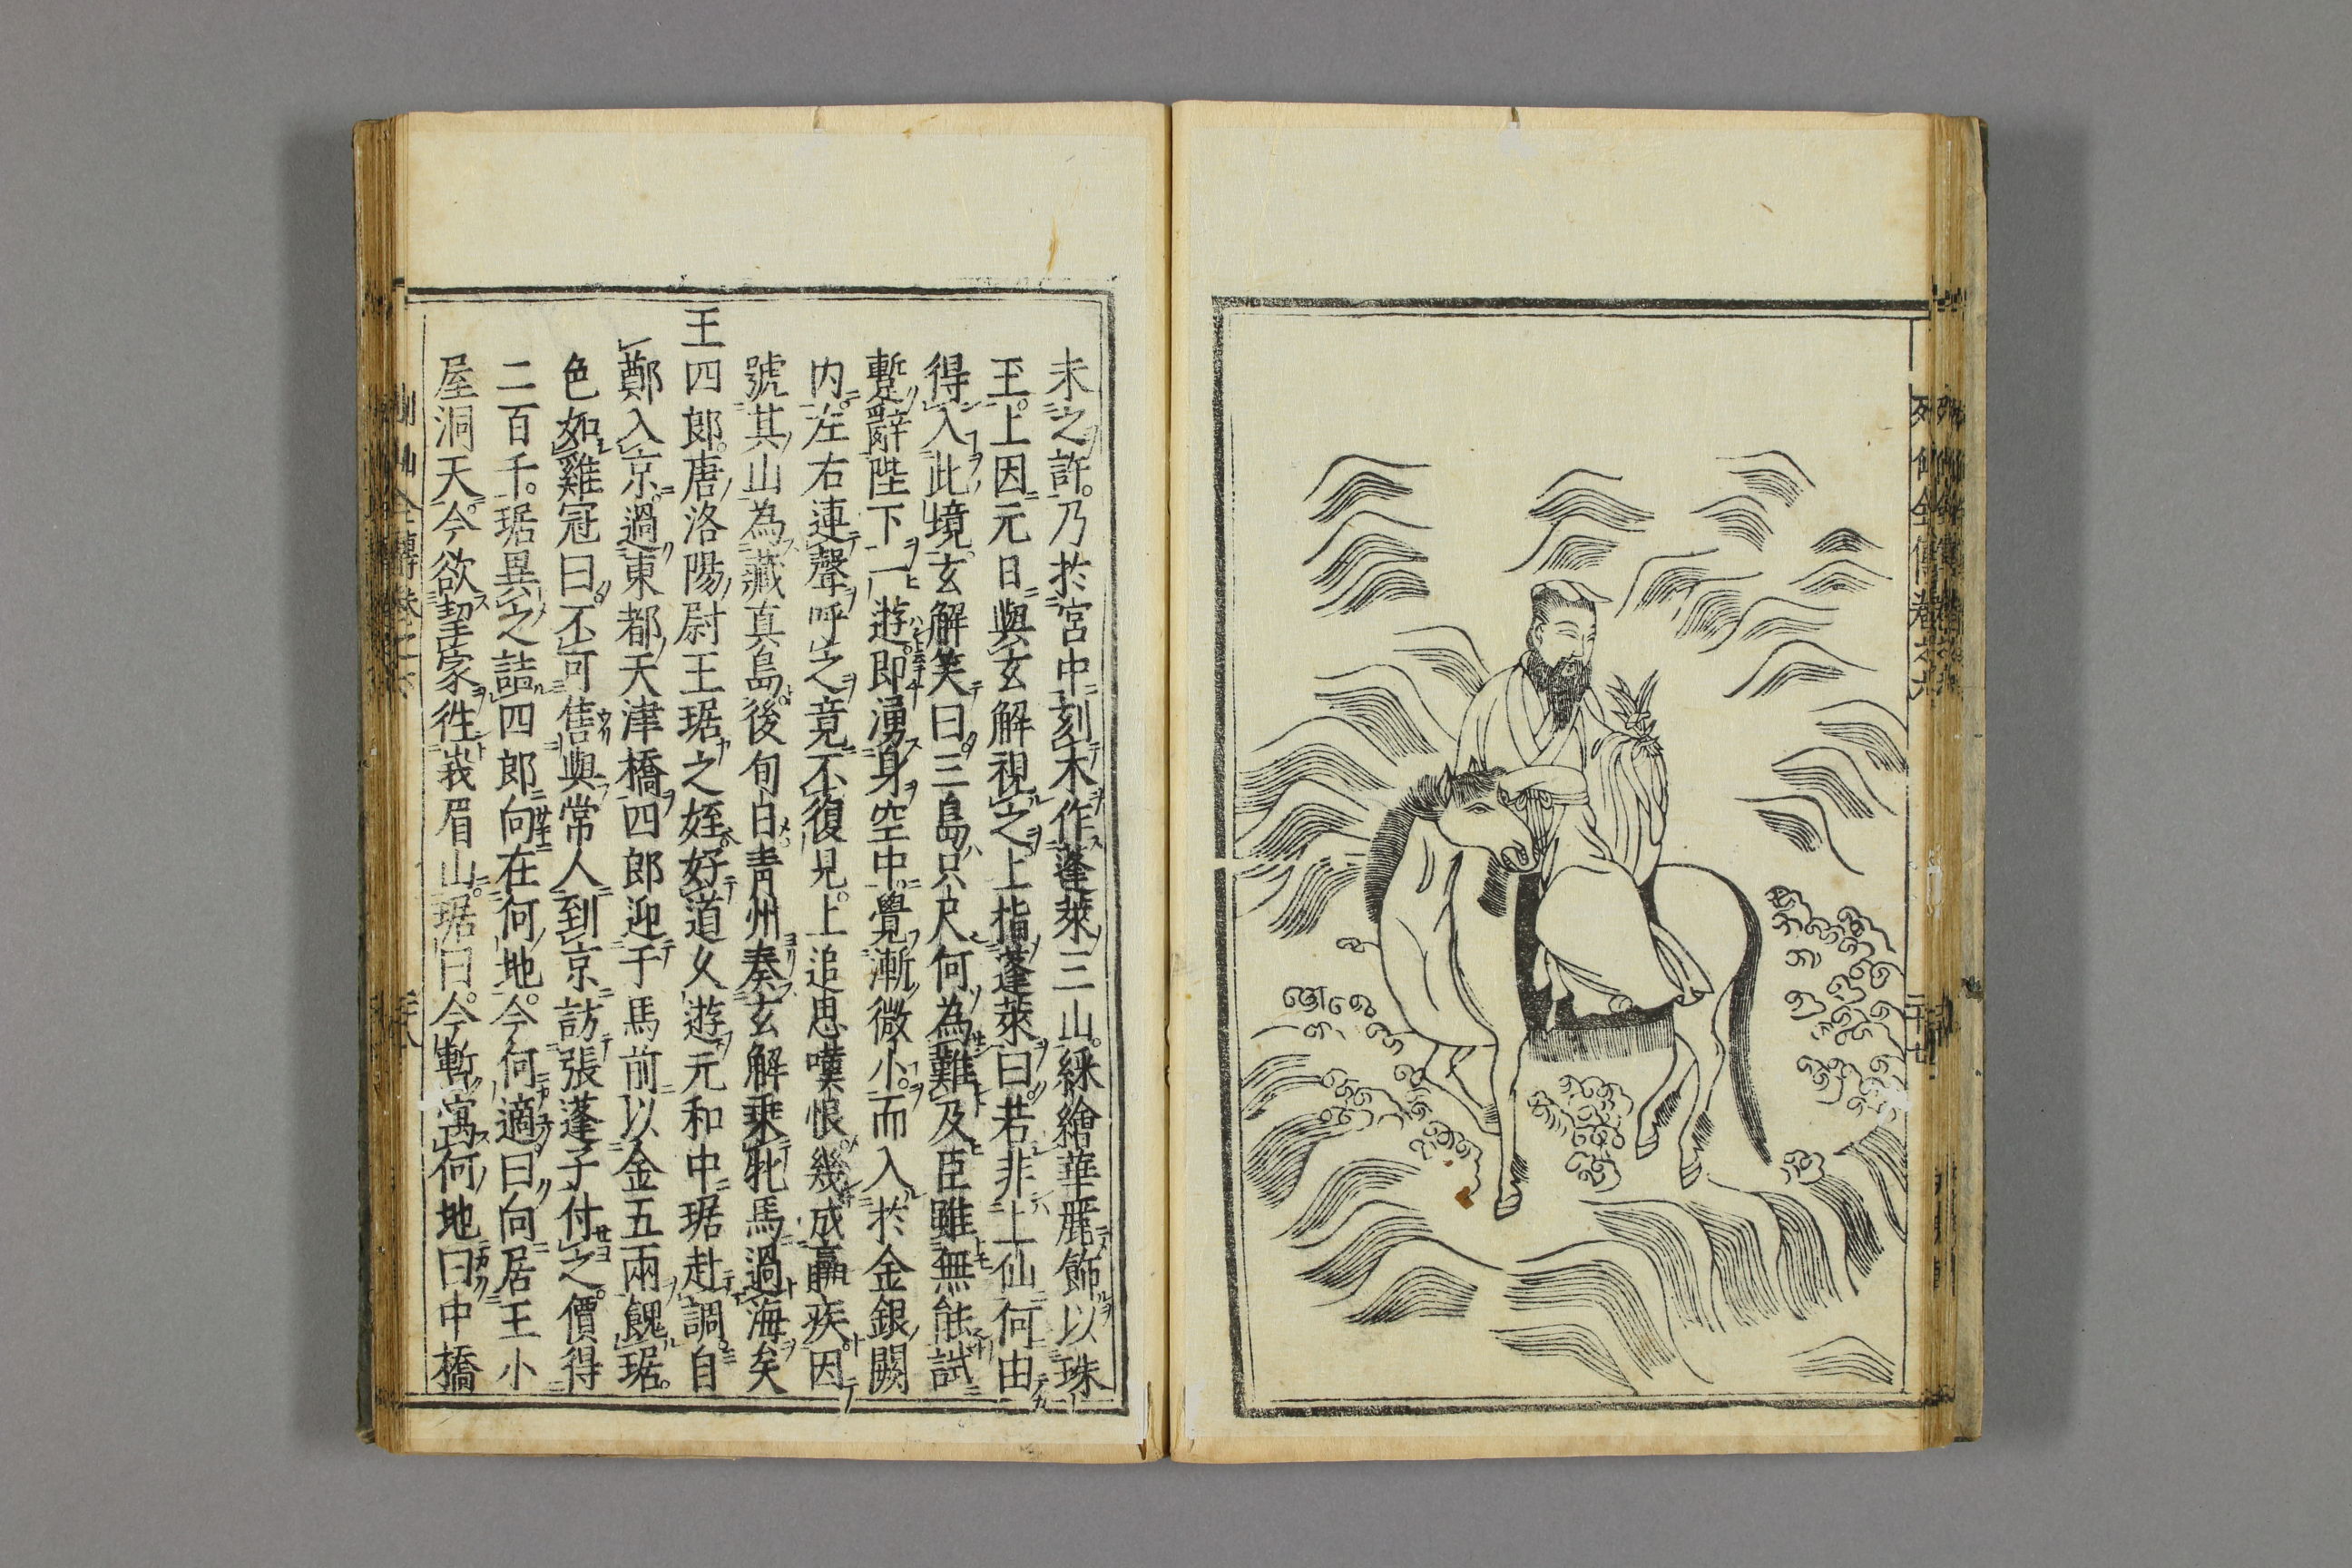 列仙全傳卷之六
二十七
未之許。乃於宮中刻木作蓬萊三山。綵繪華麗飾以珠
玉。上因元日與玄解視之上指蓬萊曰。若非上仙何由
得入此境。玄解笑曰三島只尺何為難及臣雖無能試
蹔辭陛下一遊。即湧身空中。覺漸微小。而入於金銀闕
内。左右連聲呼之竟不復見。上追思嘆恨幾成羸疾。因
號其山為藏真島。後旬日青州奏玄解乗牝馬過海矣
王四郎。唐洛陽尉王琚之姪。好道久遊元和中琚赴調。自
鄭入京。過東都天津橋四郎迎于馬前以金五兩餽琚。
色如雞冠曰。不可售與常人到京訪張蓬子付之。價得
二百千。琚異之詰四郎向在何地。今何適曰向居王小
屋洞天。今欲挈家徃峩眉山。琚曰。今暫寓何地曰中橋
列仙全傳卷之六
二十八